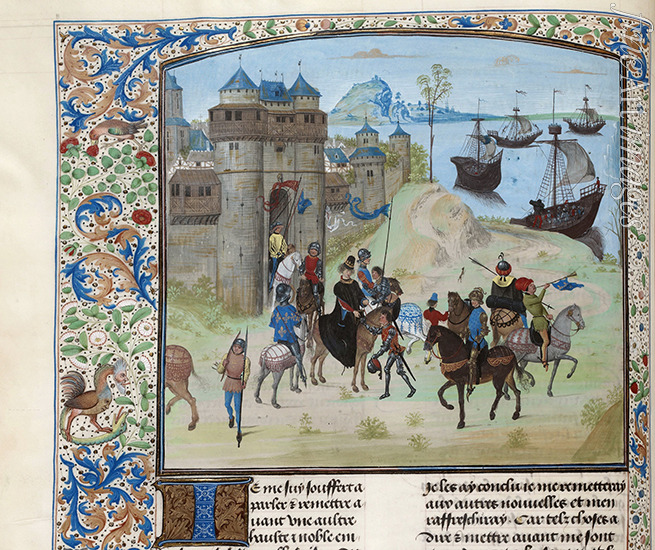 E me suy souffert a
parler & remettre a
uant vne aultre
haulte & noble em
Je les ay conclu & me remettray
aux autres nouuelles et men
raffreschiray. Car telz choses a
dire & mettre auant me sont